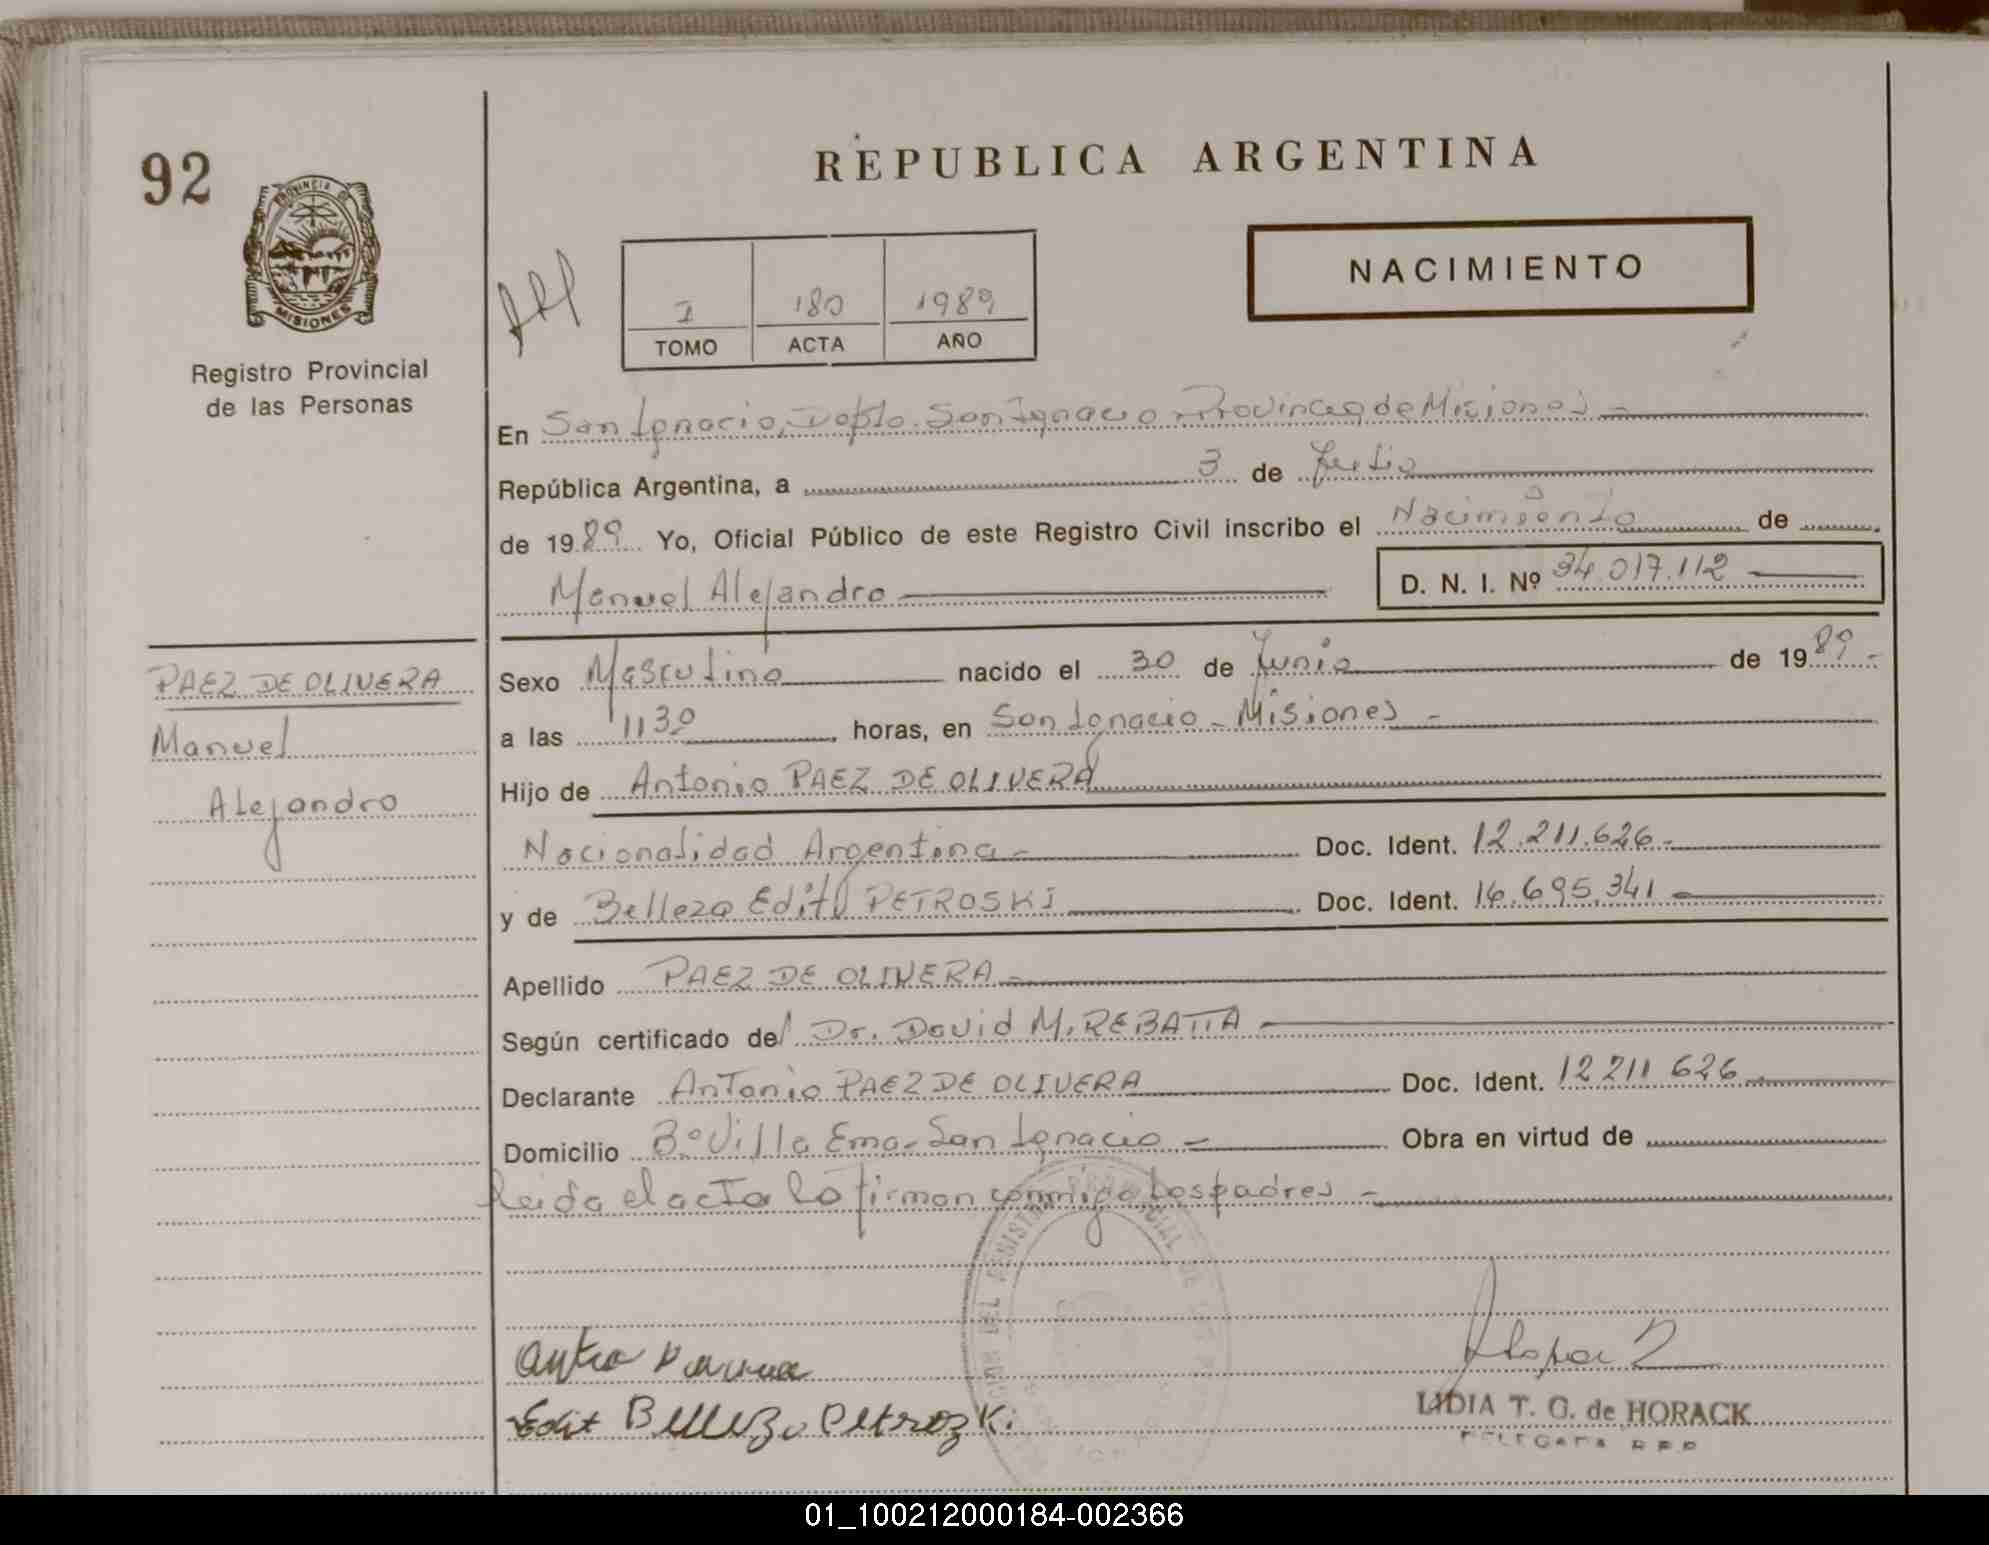 92
PROVINCIA DE
MISIONES
Registro Provincial
de las Personas
REPUBLICA ARGENTINA
NACIMIENTO
I 180 1989
TOMO ACTA AÑO
En San Ignacio, Dpto. San Ignacio Provincia de Misiones -
República Argentina, a 3 de Julio
de 1989 Yo, Oficial Público de este Registro Civil inscribo el Nacimiento de
Manuel Alejandro D. N. I. Nº 34.017.112
PAEZ DE OLIVERA
Manuel
Alejandro
Sexo Masculino nacido el 30 de Junio de 1989-
a las 1130 horas, en San Ignacio - Misiones -
Hijo de Antonio PAEZ DE OLIVERA
Nacionalidad Argentina - Doc. Ident. 12.211.626-
y de Belleza Edith PETROSKI Doc. Ident. 16.695.341 -
Apellido PAEZ DE OLIVERA -
Según certificado del Dr. David M. REBATTA -
Declarante Antonio PAEZ DE OLIVERA Doc. Ident. 12 211 626
Domicilio Bº Villa Ema - San Ignacio - Obra en virtud de
Leida el acta la firman conmigo los padres -
Edit Belleza Petrozki
LIDIA T. G. de HORACK
DELEGADA R.P.P.
01_100212000184-002366